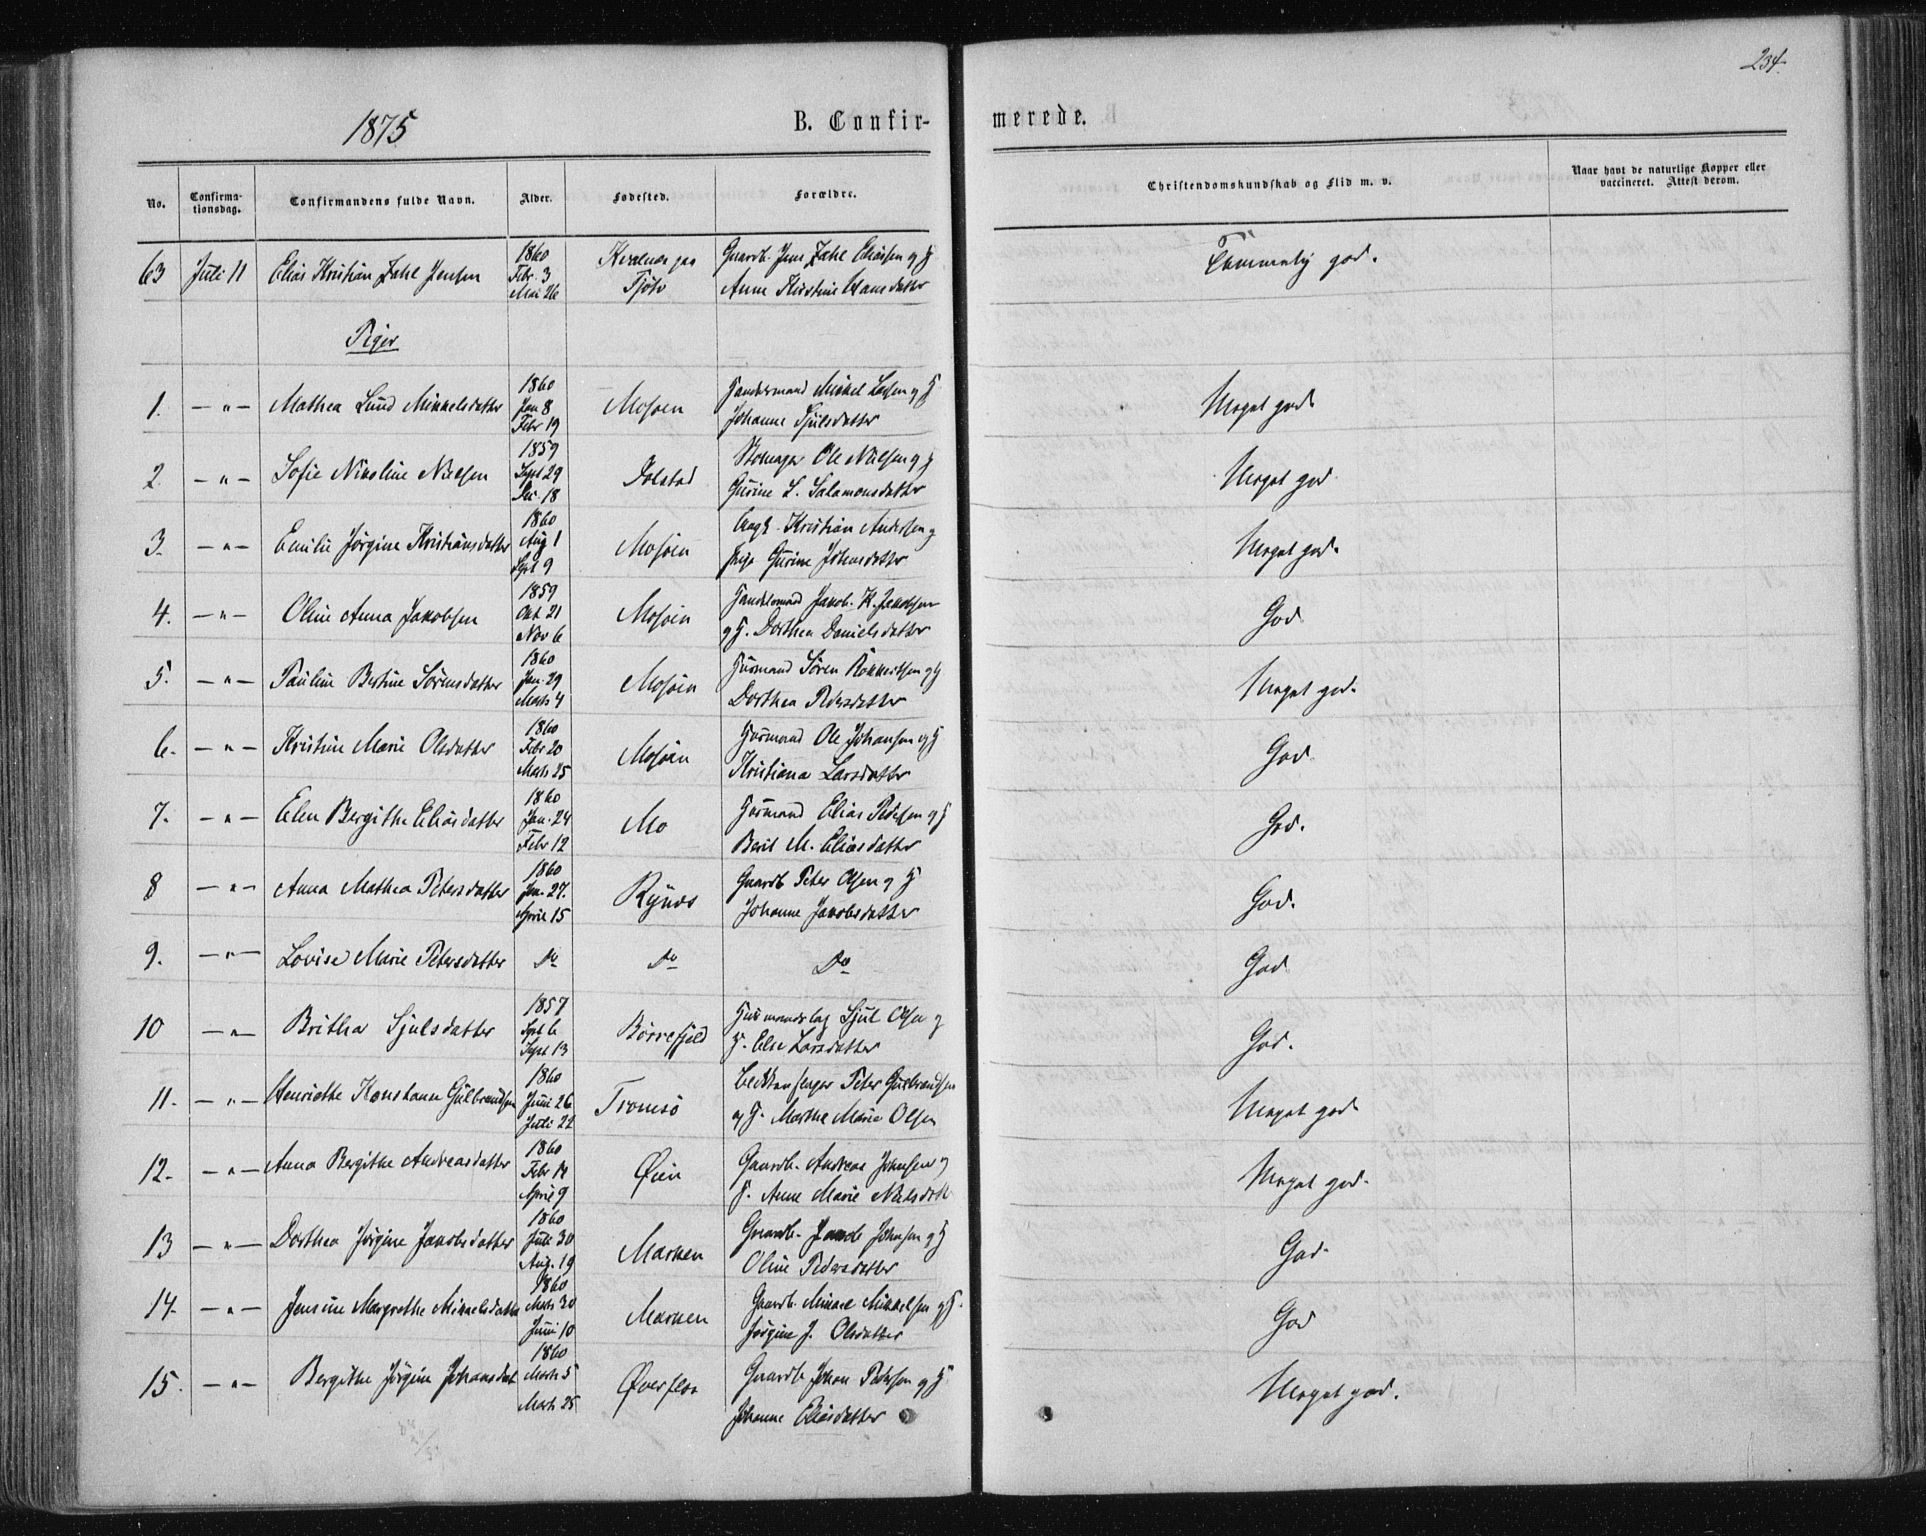 234.
1875
B. Confir-
merede.
No.
Confirma-
tionsdag.
Confirmandens fulde Navn.
Alder.
Fødested.
Forældre.
Christendomskundskab og Flid m. v.
Naar havt de naturlige Kopper eller
vaccineret. Attest derom.
63 Juli 11 Elias Kristian Zahl Jensen 1860 Febr. 3 Mai 26 paa Tjøtø Gaardb. Jens Zahl Eliassen og H Anne Kirstine Hansdatter Temmelig god.
Piger
1. — " — Mathea Lund Mikkelsdatter 1860 Jan 8 Febr 19 Mosøen Handelsmand Mikkel og H Johanne Sjulsdatter Meget god.
2 — " — Sofie Nikoline Nielsen 1859 Sept 29 Dec. 18 Dolstad Skomager Ole Nielsen og H Gurine S. Salamonsdatter Meget god
3. — " — Emilie Jørgine Kristiansdatter 1860 Aug 1 Sept 9 Mosøen Kristian Andersen og Pige Gurine Johansdatter Meget god.
4. — " — Oline Anna Jakobsen 1859 Okt. 21 Nov 6 Mosøen Handelsmand Jakob K. Jakobsen og H. Dorthea Danielsdatter God
5. — " — Pauline Bertine Sørensdatter 1860 Jan. 29 Marts 4 Mosøen Huusmand Søren og H Dorthea Pedersdatter Meget god.
6. — " — Kristine Marie Olsdatter 1860 Febr 20 Marts 25 Mosøen Huusmand Ole Johansen og H Kristiana Larsdatter God
7. — " — Elen Bergithe Eliasdatter 1860 Jan. 24 Febr 12 Mo Huusmand Elias Pedersen og H Berit M. Eliasdatter God.
8 — " — Anna Mathea Petersdatter 1860 Jan. 27. April 15 Rynes Gaardb Peter Olsen og H Johanne Jakobsdatter God.
9. — " — Lovise Marie Petersdatter Do Do Do God
10 — " — Britha Sjulsdatter 1857 Sept 6 Sept 13 Børrefjeld Sjul Olsen og H. Else Larsdatter God.
11. — " — Henriette Konstance Gulbrandsen 1860 Juni 26 Juli 22 Tromsø Peter Gulbrandsen og H. Marthe Marie Olsen Meget god
12. — " — Anna Bergithe Andreasdatter 1860 Febr 14 April 9 Øien Gaardb. Andreas Johnsen og H. Anne Marie Nielsdatt Meget god.
13 — " — Dorthea Jørgine Jakobsdatter 1860 Juli 30 Aug. 19 Marken Gaardb. Jakob Johnsen og H Oline Pedersdatter God.
14. — " — Jensine Margrethe Mikkelsdatter 1860 Marts 30 Juni 10 Marken Gaardb. Mikkel Mikkelsen og H. Jørgine J. Olsdatter God
15. — " — Bergithe Jørgine Johansdat 1860 Marts 5 Marts 25 Øverflaa Gaardb Johan Pedersen og H Johanne Eliasdatter Meget god.